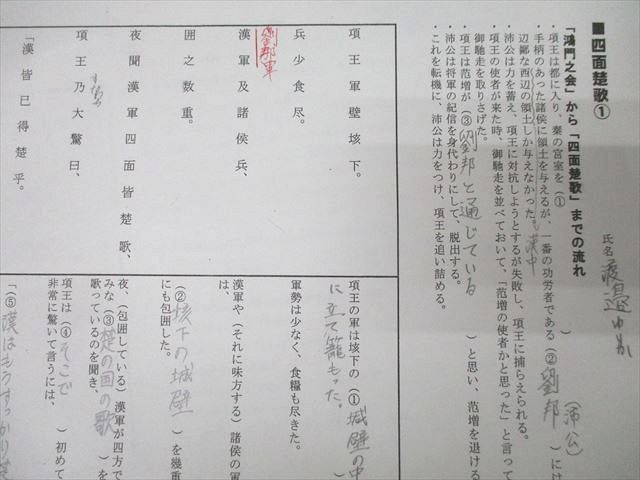 ■四面楚歌①
氏名 渡邉
「鴻門之会」から「四面楚歌」までの流れ
・項王は都に入り、秦の宮室を(①
手柄のあった諸侯に領土を与えるが、一番の功労者である(②劉邦(沛公)には
辺鄙な西辺の領土しか与えなかった。漢中
・沛公は力を蓄え、項王に対抗しようとするが失敗し、項王に捕らえられる。
・項王の使者が来た時、御馳走を並べておいて、「范増の使者かと思った」と言って
御馳走を取りさげた。
・項王は范増が(③劉邦と通じている)と思い、范増を退ける
・沛公は将軍の紀信を身代わりにして、脱出する。
・これを転機に、沛公は力をつけ、項王を追い詰める。
項王軍壁垓下。
兵少食尽。
劉邦軍
漢軍及諸侯兵、
囲之数重。
夜聞漢軍四面皆楚歌、
すなわち
項王乃大驚曰、
「漢皆已得楚乎。
項王の軍は垓下の(①城壁の中
に立て籠もった。)
軍勢は少なく、食糧も尽きた。
漢軍や(それに味方する)諸侯の軍
は、
(②垓下の城壁)を幾重
にも包囲した。
夜、(包囲している)漢軍が四方で
みな(③楚の国の歌)を
歌っているのを聞き、
項王は(④そこで)初めて
非常に驚いて言うには、
「(⑤漢はもうすっかり楚